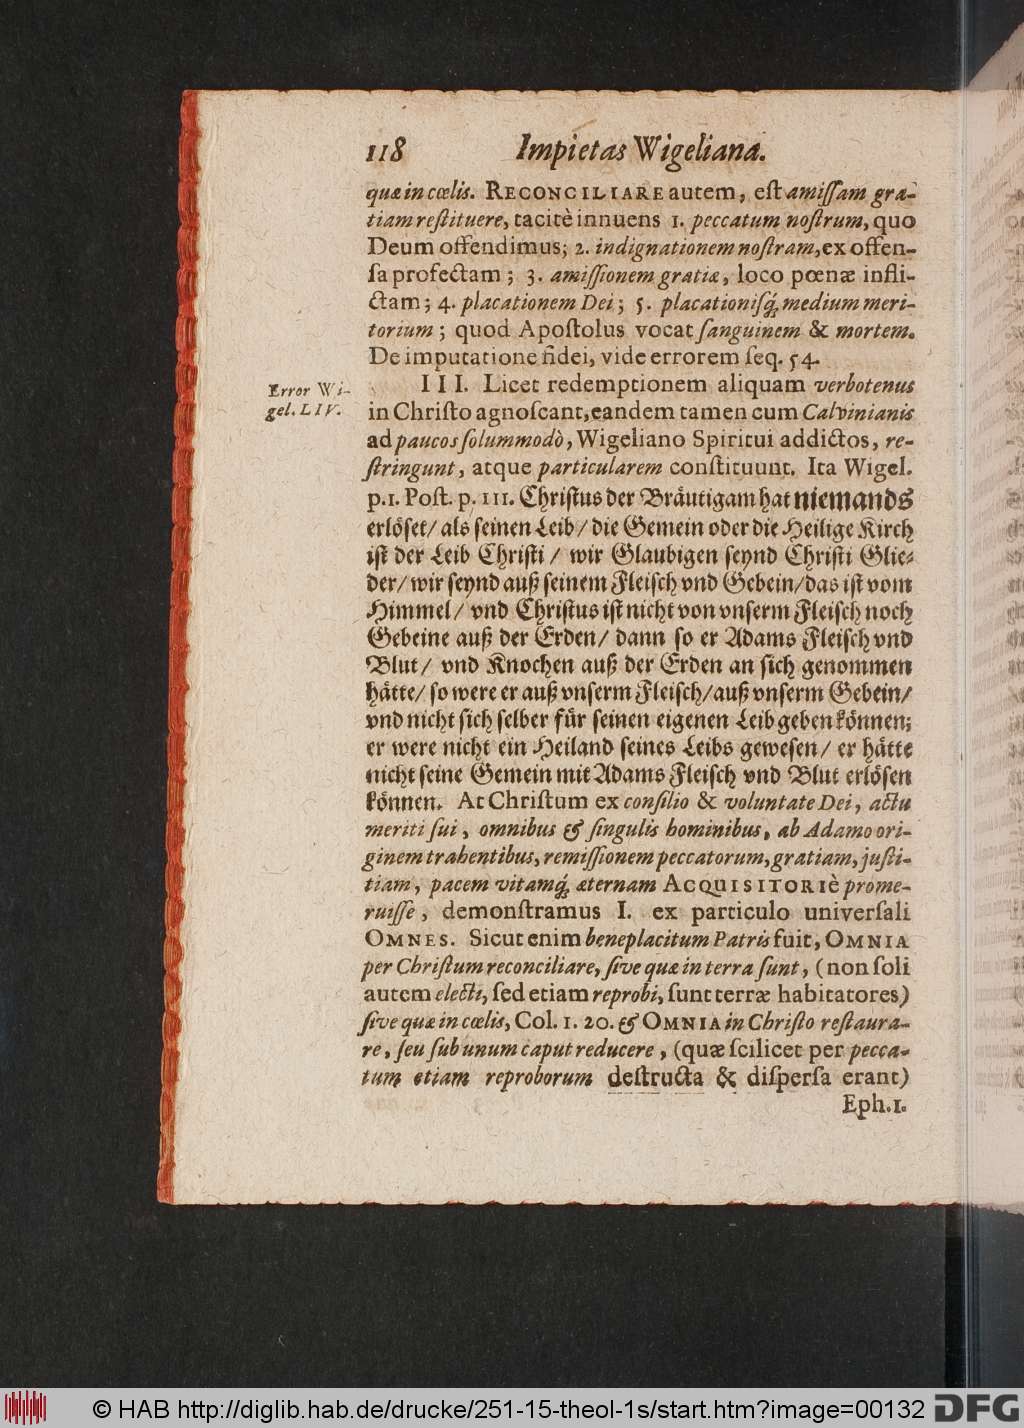 118 Impietas Wigeliana.
quæ in cœlis. RECONCILIARE autem, eſt amiſſam gra-
tiam reſtituere, tacitè innuens 1. peccatum noſtrum, quo
Deum offendimus; 2. indignationem noſtram, ex offen-
ſa profectam; 3. amiſſionem gratiæ, loco pœnæ infli-
ctam; 4. placationem Dei; 5. placationiſq́; medium meri-
torium; quod Apoſtolus vocat ſanguinem & mortem.
De imputatione fidei, vide errorem ſeq. 54.
Error Wi-
gel. LIV.
III. Licet redemptionem aliquam verbotenus
in Chriſto agnoſcant, eandem tamen cum Calvinianis
ad paucos ſolummodò, Wigeliano Spiritui addictos, re-
ſtringunt, atque particularem conſtituunt. Ita Wigel.
p.1. Poſt. p. 111. Chriſtus der Bräutigam hat niemands
erlöſet/ als ſeinen Leib/ die Gemein oder die Heilige Kirch
iſt der Leib Chriſti / wir Glaubigen ſeynd Chriſti Glie-
der/ wir ſeynd auß ſeinem Fleiſch vnd Gebein/ das iſt vom
Himmel/ vnd Chriſtus iſt nicht von vnſerm Fleiſch noch
Gebeine auß der Erden/ dann ſo er Adams Fleiſch vnd
Blut/ vnd Knochen auß der Erden an ſich genommen
hätte/ ſo were er auß vnſerm Fleiſch/ auß vnſerm Gebein/
vnd nicht ſich ſelber für ſeinen eigenen Leib geben können;
er were nicht ein Heiland ſeines Leibs geweſen/ er hätte
nicht ſeine Gemein mit Adams Fleiſch vnd Blut erlöſen
können. At Chriſtum ex conſilio & voluntate Dei, actu
meriti ſui, omnibus & ſingulis hominibus, ab Adamo ori-
ginem trahentibus, remiſſionem peccatorum, gratiam, juſti-
tiam, pacem vitamq́; æternam ACQUISITORIè prome-
ruiſſe, demonſtramus I. ex particulo univerſali
OMNES. Sicut enim beneplacitum Patris fuit, OMNIA
per Chriſtum reconciliare, ſive quæ in terra ſunt, (non ſoli
autem electi, ſed etiam reprobi, ſunt terræ habitatores)
ſive quæ in cœlis, Col. 1. 20. & OMNIA in Chriſto reſtaura-
re, ſeu ſub unum caput reducere, (quæ ſcilicet per pecca-
tum etiam reproborum deſtructa & diſperſa erant)
Eph.1.
© HAB http://diglib.hab.de/drucke/251-15-theol-1s/start.htm?image=00132
DFG